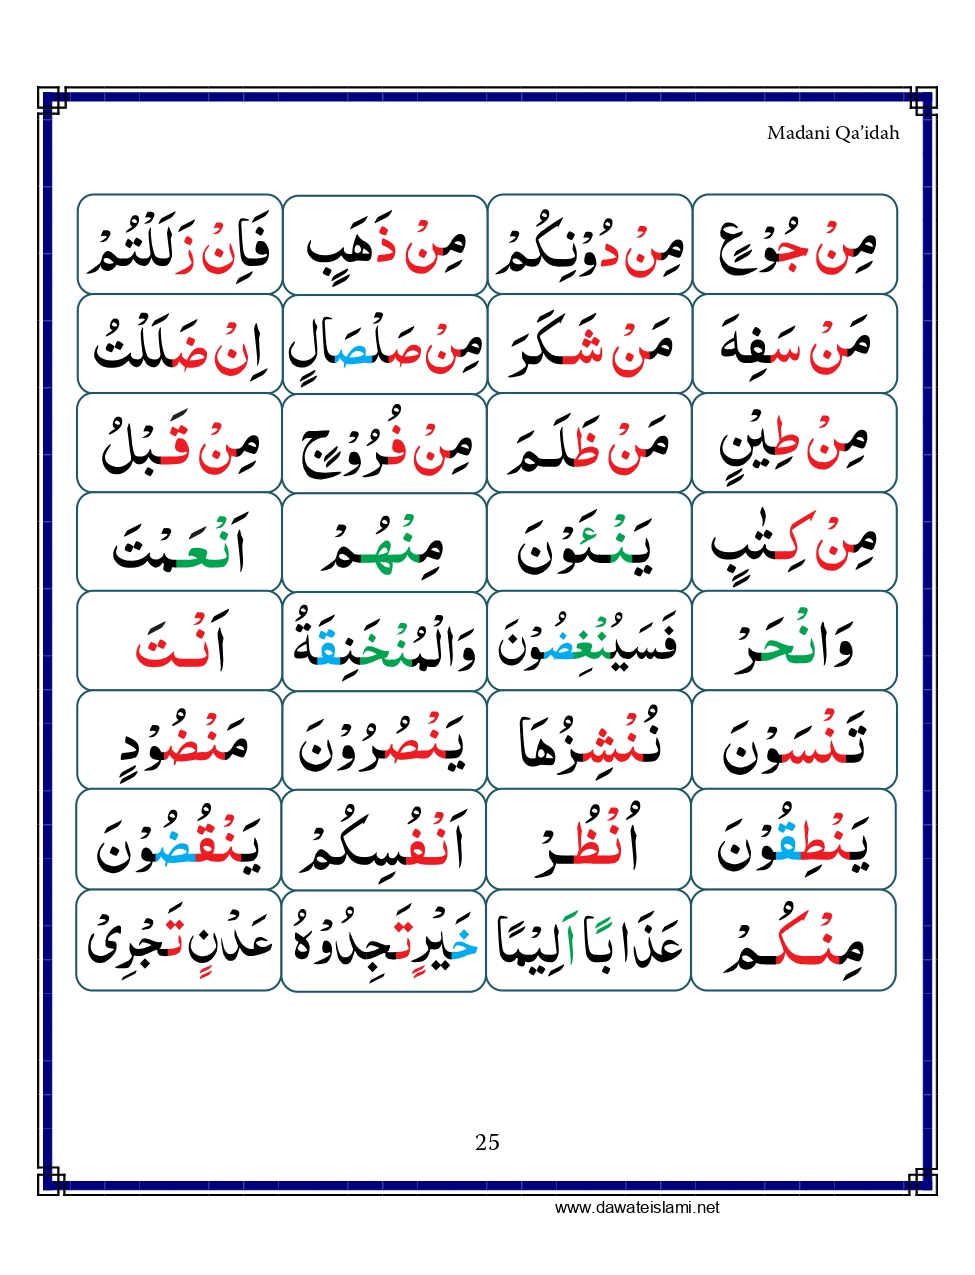 Madani Qa’idah
مِنْ جُوْعٍ مِنْ دُوْنِكُمْ مِنْ ذَهَبٍ فَاِنْ زَلَلْتُمْ
مَنْ سَفِهَ مَنْ شَكَرَ مِنْ صَلْصَالٍ اِنْ ضَلَلْتُ
مِنْ طِيْنٍ مَنْ ظَلَمَ مِنْ فُرُوْجٍ مِنْ قَبْلُ
مِنْ كِتٰبٍ يَنْئَوْنَ مِنْهُمْ اَنْعَمْتَ
وَانْحَرْ فَسَيُنْغِضُوْنَ وَالْمُنْخَنِقَةُ اَنْتَ
تَنْسَوْنَ نُنْشِزُهَا يَنْصُرُوْنَ مَنْضُوْدٍ
يَنْطِقُوْنَ اُنْظُرْ اَنْفُسِكُمْ يَنْقُضُوْنَ
مِنْكُمْ عَذَابًا اَلِيْمًا خَيْرٍ تَجِدُوْهُ عَدْنٍ تَجْرِيْ
25
www.dawateislami.net